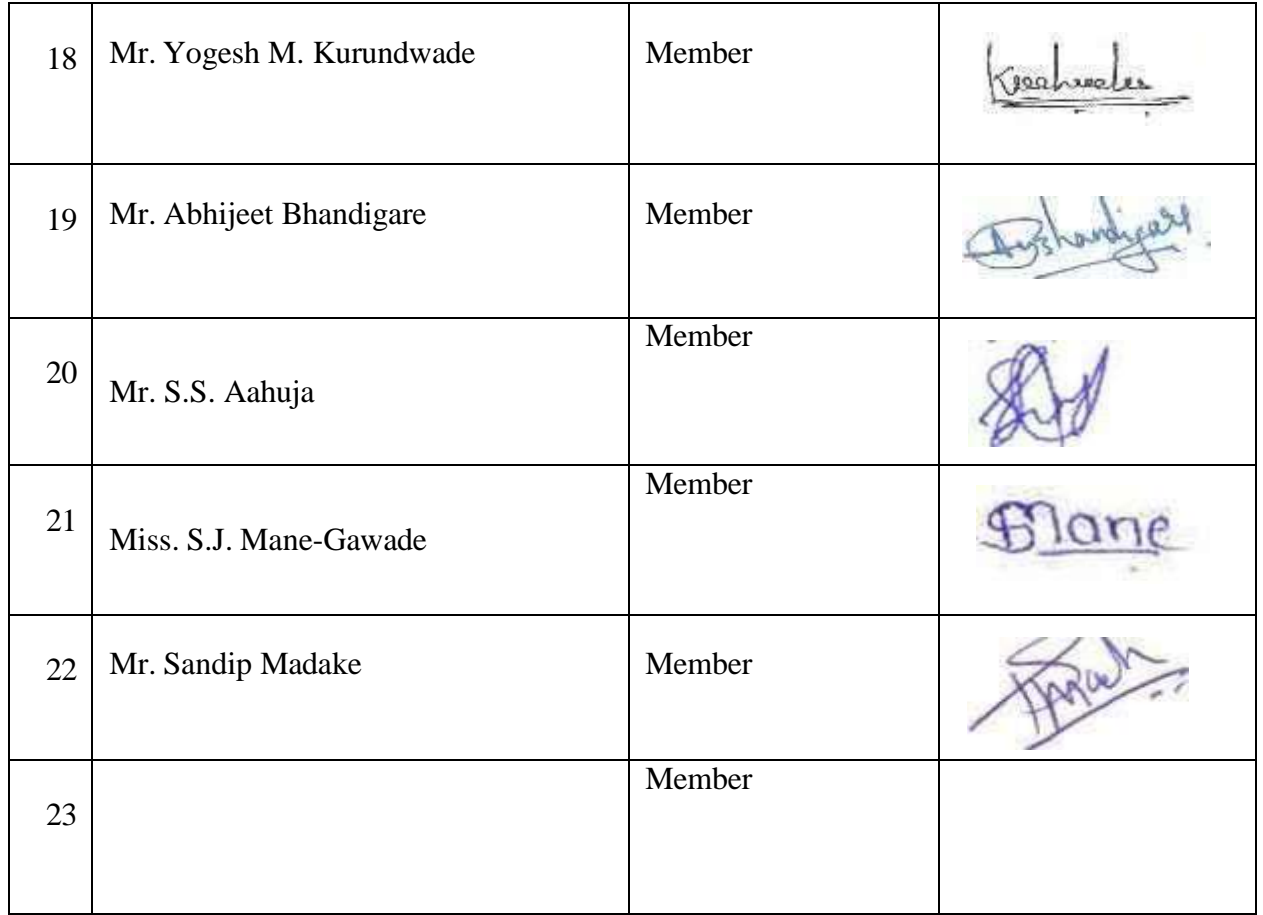 18 Mr. Yogesh M. Kurundwade Member
19 Mr. Abhijeet Bhandigare Member
20 Mr. S.S. Aahuja Member
21 Miss. S.J. Mane-Gawade Member SMane
22 Mr. Sandip Madake Member
23 Member